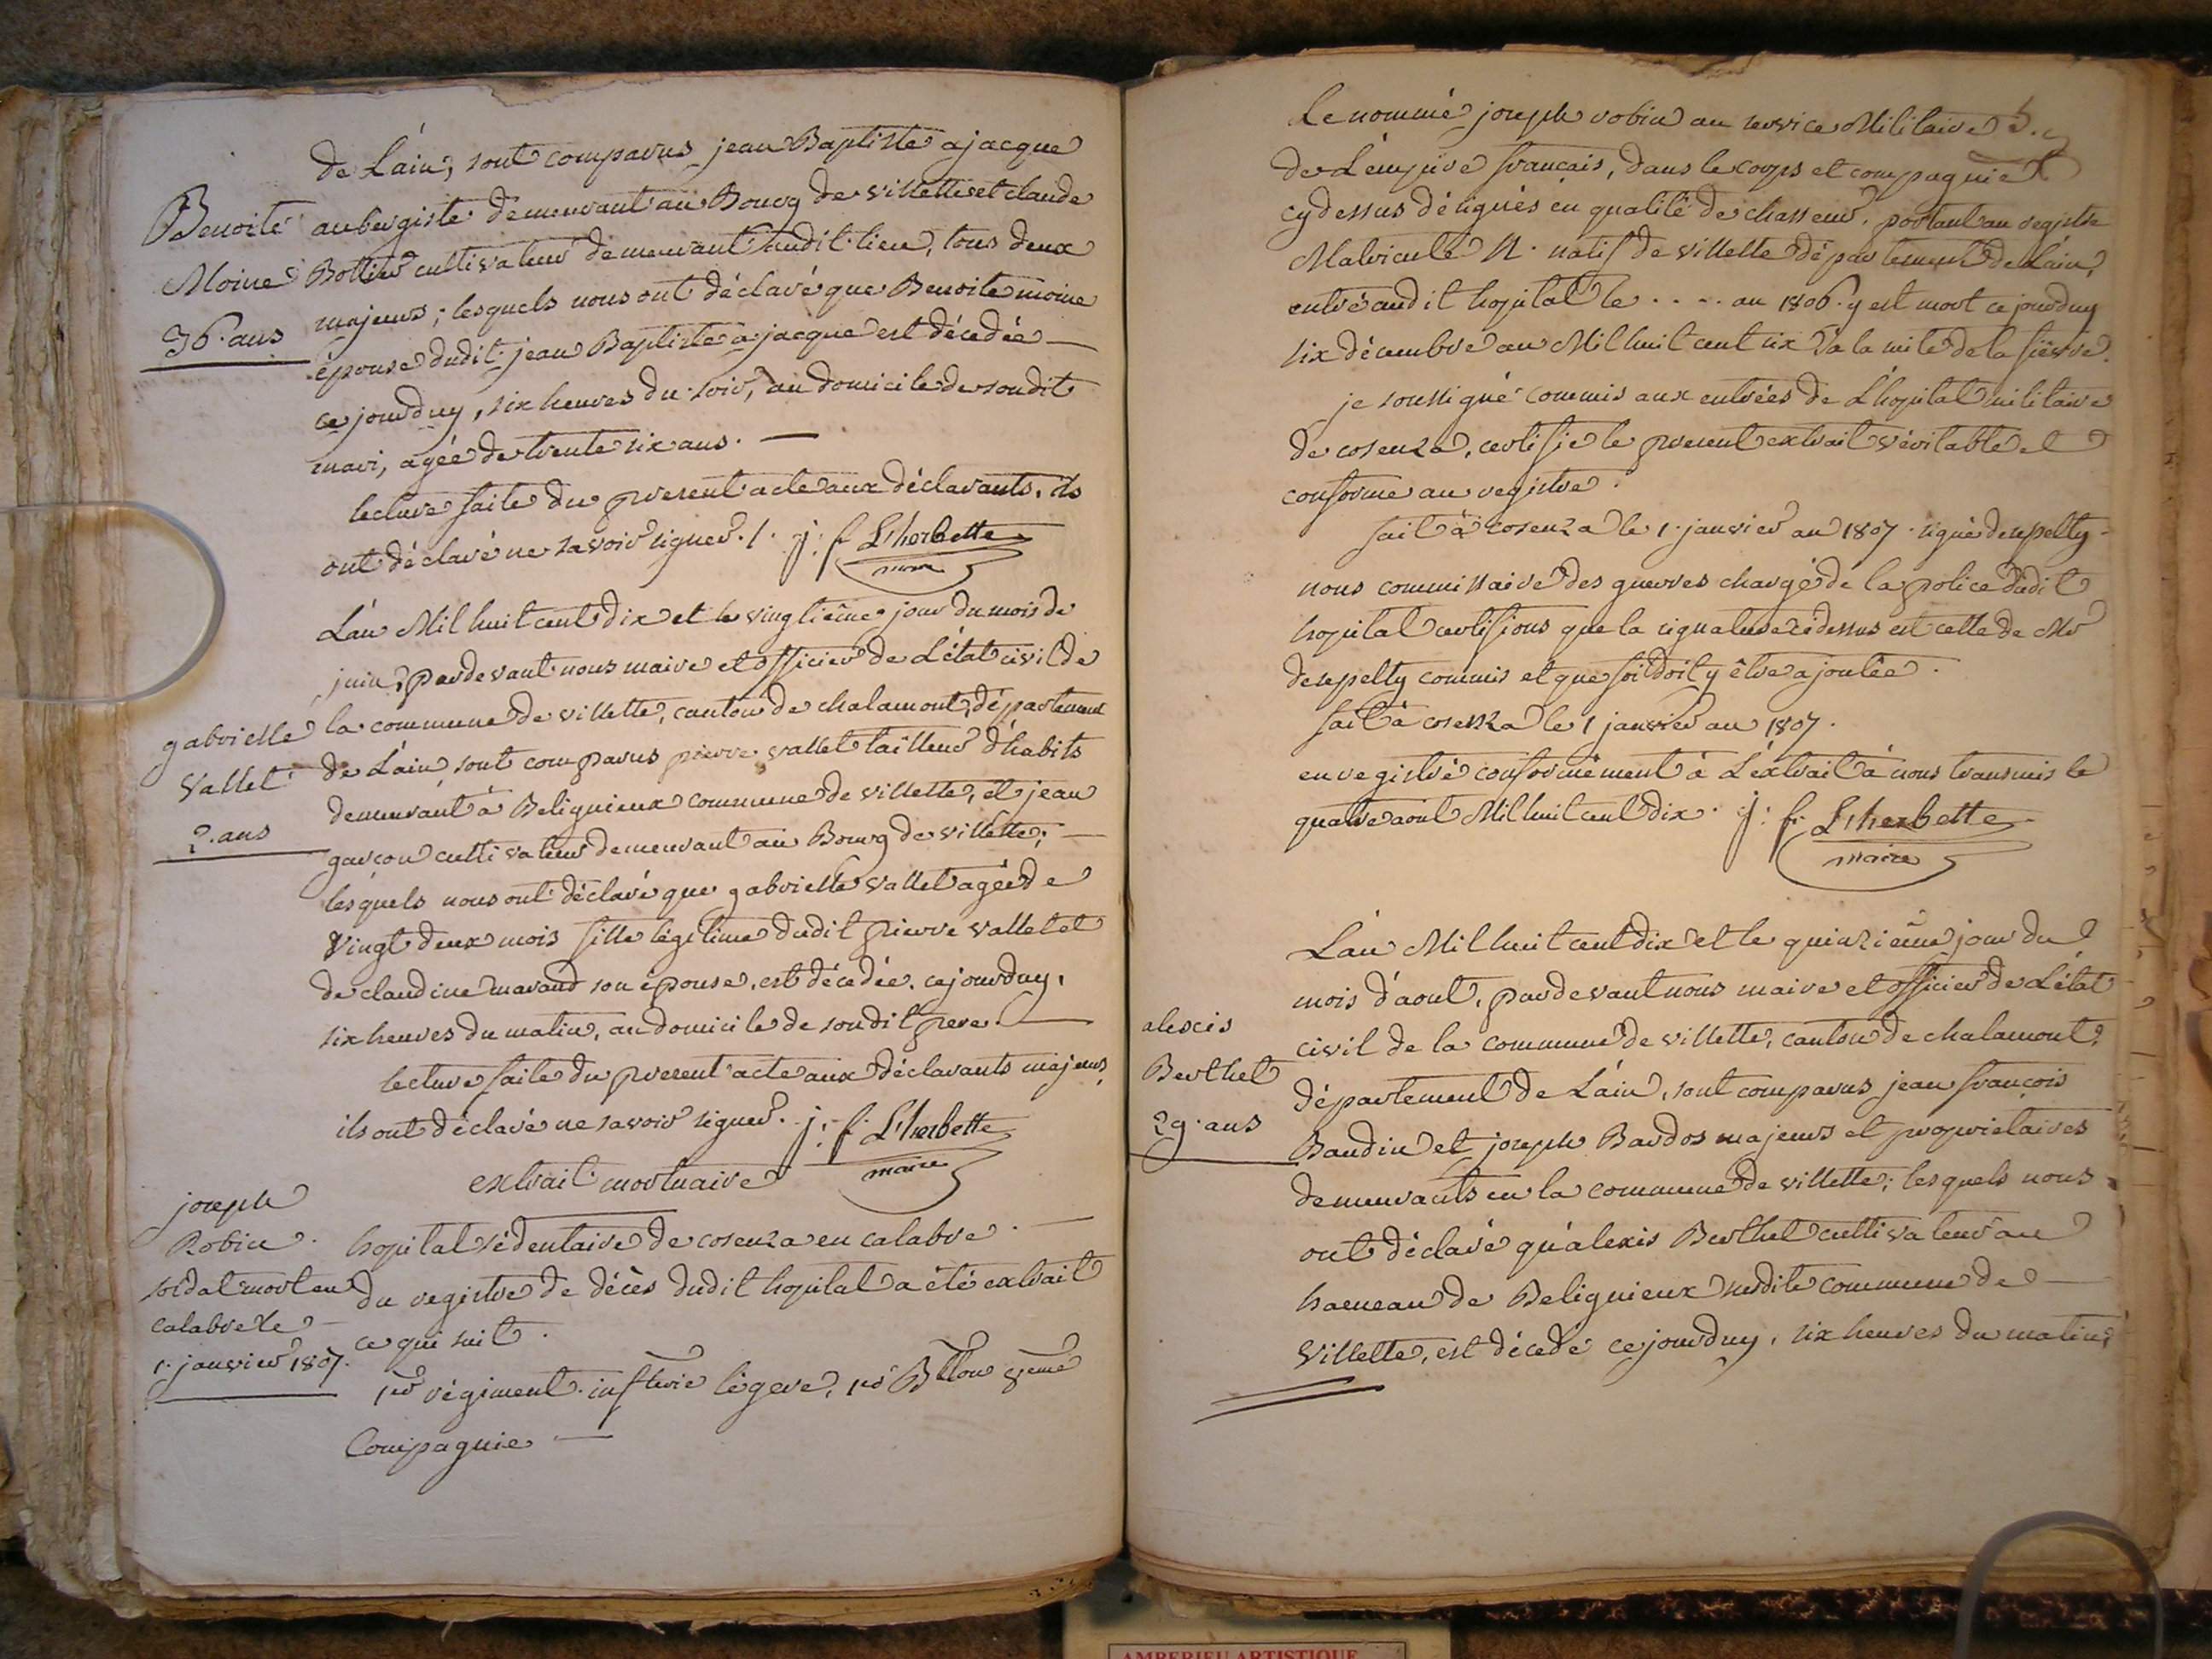 de L'ain, sont comparus jean Baptiste ajacque
Benoite
Moine
36. ans
aubergiste demeurant au Bourg de villette et claude
Bottier cultivateur demeurant audit lieu, tous deux
majeurs; lesquels nous ont déclaré que Benoite moine
épouse dudit jean Baptiste a jacque est décédée —
ce jourduy, six heures du soir, au domicile de sondit
mari, agée de trente six ans. —
lecture faite du present acte aux déclarants, ils
ont déclaré ne savoir signer. /. j: f. L'herbette
maire
L'an Mil huit cent dix et le vingtième jour du mois de
juin, pardevant nous maire et officier de L'état civil de
gabrielle
Vallet
2. ans
la commune de villette, canton de chalamont, département
de L'ain sont comparus pierre vallet tailleur d'habits
demeurant à Beliguieux commune de villette, et jean
garçon cultivateur demeurant au Bourg de villette; —
lesquels nous ont déclaré que gabrielle vallet agée de
vingt deux mois fille légitime dudit pierre vallet et
de claudine marand son épouse, est décédée, cejourduy,
six heures du matin, au domicile de sondit pere. —
lecture faite du present acte aux déclarants majeurs,
ils ont déclaré ne savoir signer. j: f. L'herbette
maire
extrait mortuaire
joseph
Robin.
soldat mort en
calabre le —
1. janvier 1807.
hopital sédentaire de cosenza en calabre. —
du registre de décès dudit hopital a été extrait
ce qui suit.
1er régiment inftrie légere, 1er Bllon 8eme
Compagnie —
Le nommé joseph robin au service Militaire
de L'empire français, dans le corps et compagnie
cy dessus désignés en qualité de chasseur, portant au registre
Matricule N. natif de villette département de L'ain,
entré audit hopital le . . - . an 1806. y est mort ce jourduy
six décembre an Mil huit cent six à la suite de la fièvre.
je soussigné commis aux entrées de L'hopital militaire
de cosenza, certifie le present extrait véritable et
conforme au registre.
fait à cosenza le 1. janvier an 1807. signé desepelty -
nous commissaire des guerres chargé de la police dudit
hopital certifions que la signature cidessus est celle de Mr
desepelty commis et que foi doit y être ajoutée.
fait à cosenza le 1 janvier an 1807.
enregistré conformément à L'extrait à nous transmis le
quatre aout Mil huit cent dix. j: f. L'herbette
maire
L'an Mil huit cent dix et le quinzième jour du
mois d'aout, pardevant nous maire et officier de L'état
alexis
Berthet
29. ans
civil de la commune de villette, canton de chalamont,
département de L'ain, sont comparus jean françois
Baudin et joseph Bardos majeurs et proprietaires
demeurants en la commune de villette; lesquels nous
ont déclaré qu'alexis Berthet cultivateur au
hameau de Beliguieux susdite commune de —
Villette, est décédé cejourduy, six heures du matin,
AMBERIEU ARTISTIQUE